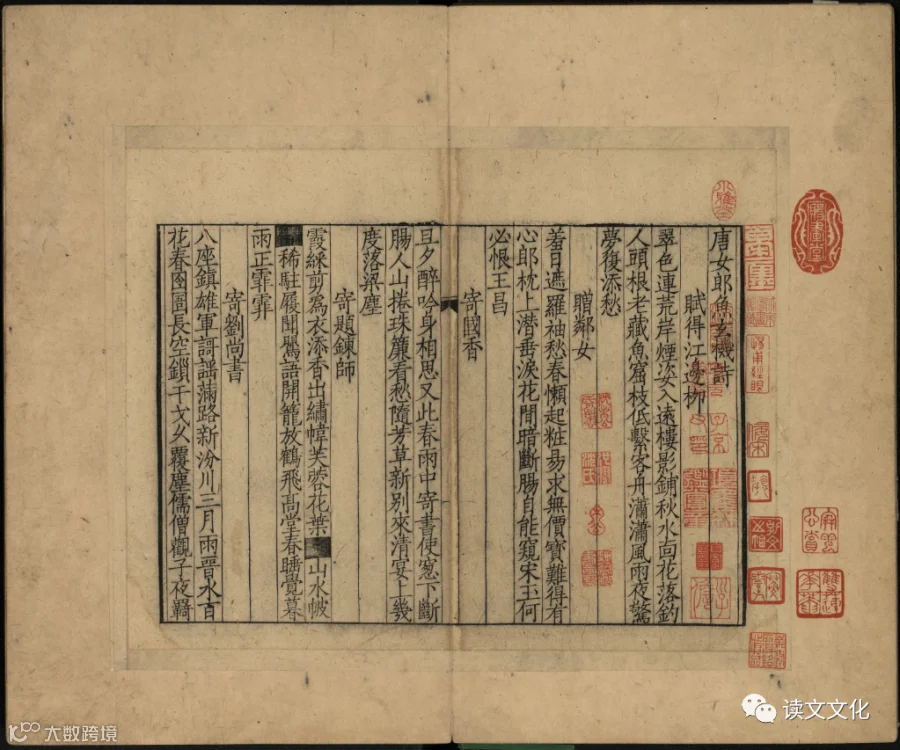 唐女郎魚玄機詩
賦得江邊柳
翠色連荒岸煙姿入遠樓影鋪秋水面花落釣
人頭根老藏魚窟枝低繫客舟瀟瀟風雨夜驚
夢復添愁
贈鄰女
羞日遮羅袖愁春懶起粧易求無價寶難得有
心郎枕上潜垂淚花間暗斷腸自能窺宋玉何
必恨王昌
寄國香
旦夕醉吟身相思又此春雨中寄書使窓下斷
腸人山捲珠簾看愁隨芳草新別來清宴上幾
度落梁塵
寄題鍊師
霞綵剪為衣添香出繡幃芙蓉花葉山水帔
稀駐履聞鸎語開籠放鶴飛高堂春睡覺暮
雨正霏霏
寄劉尚書
八座鎮雄軍謌謡滿路新汾川三月雨晉水百
花春囹圄長空鎖干戈久覆塵儒僧觀子夜羇
读文文化
大数跨境